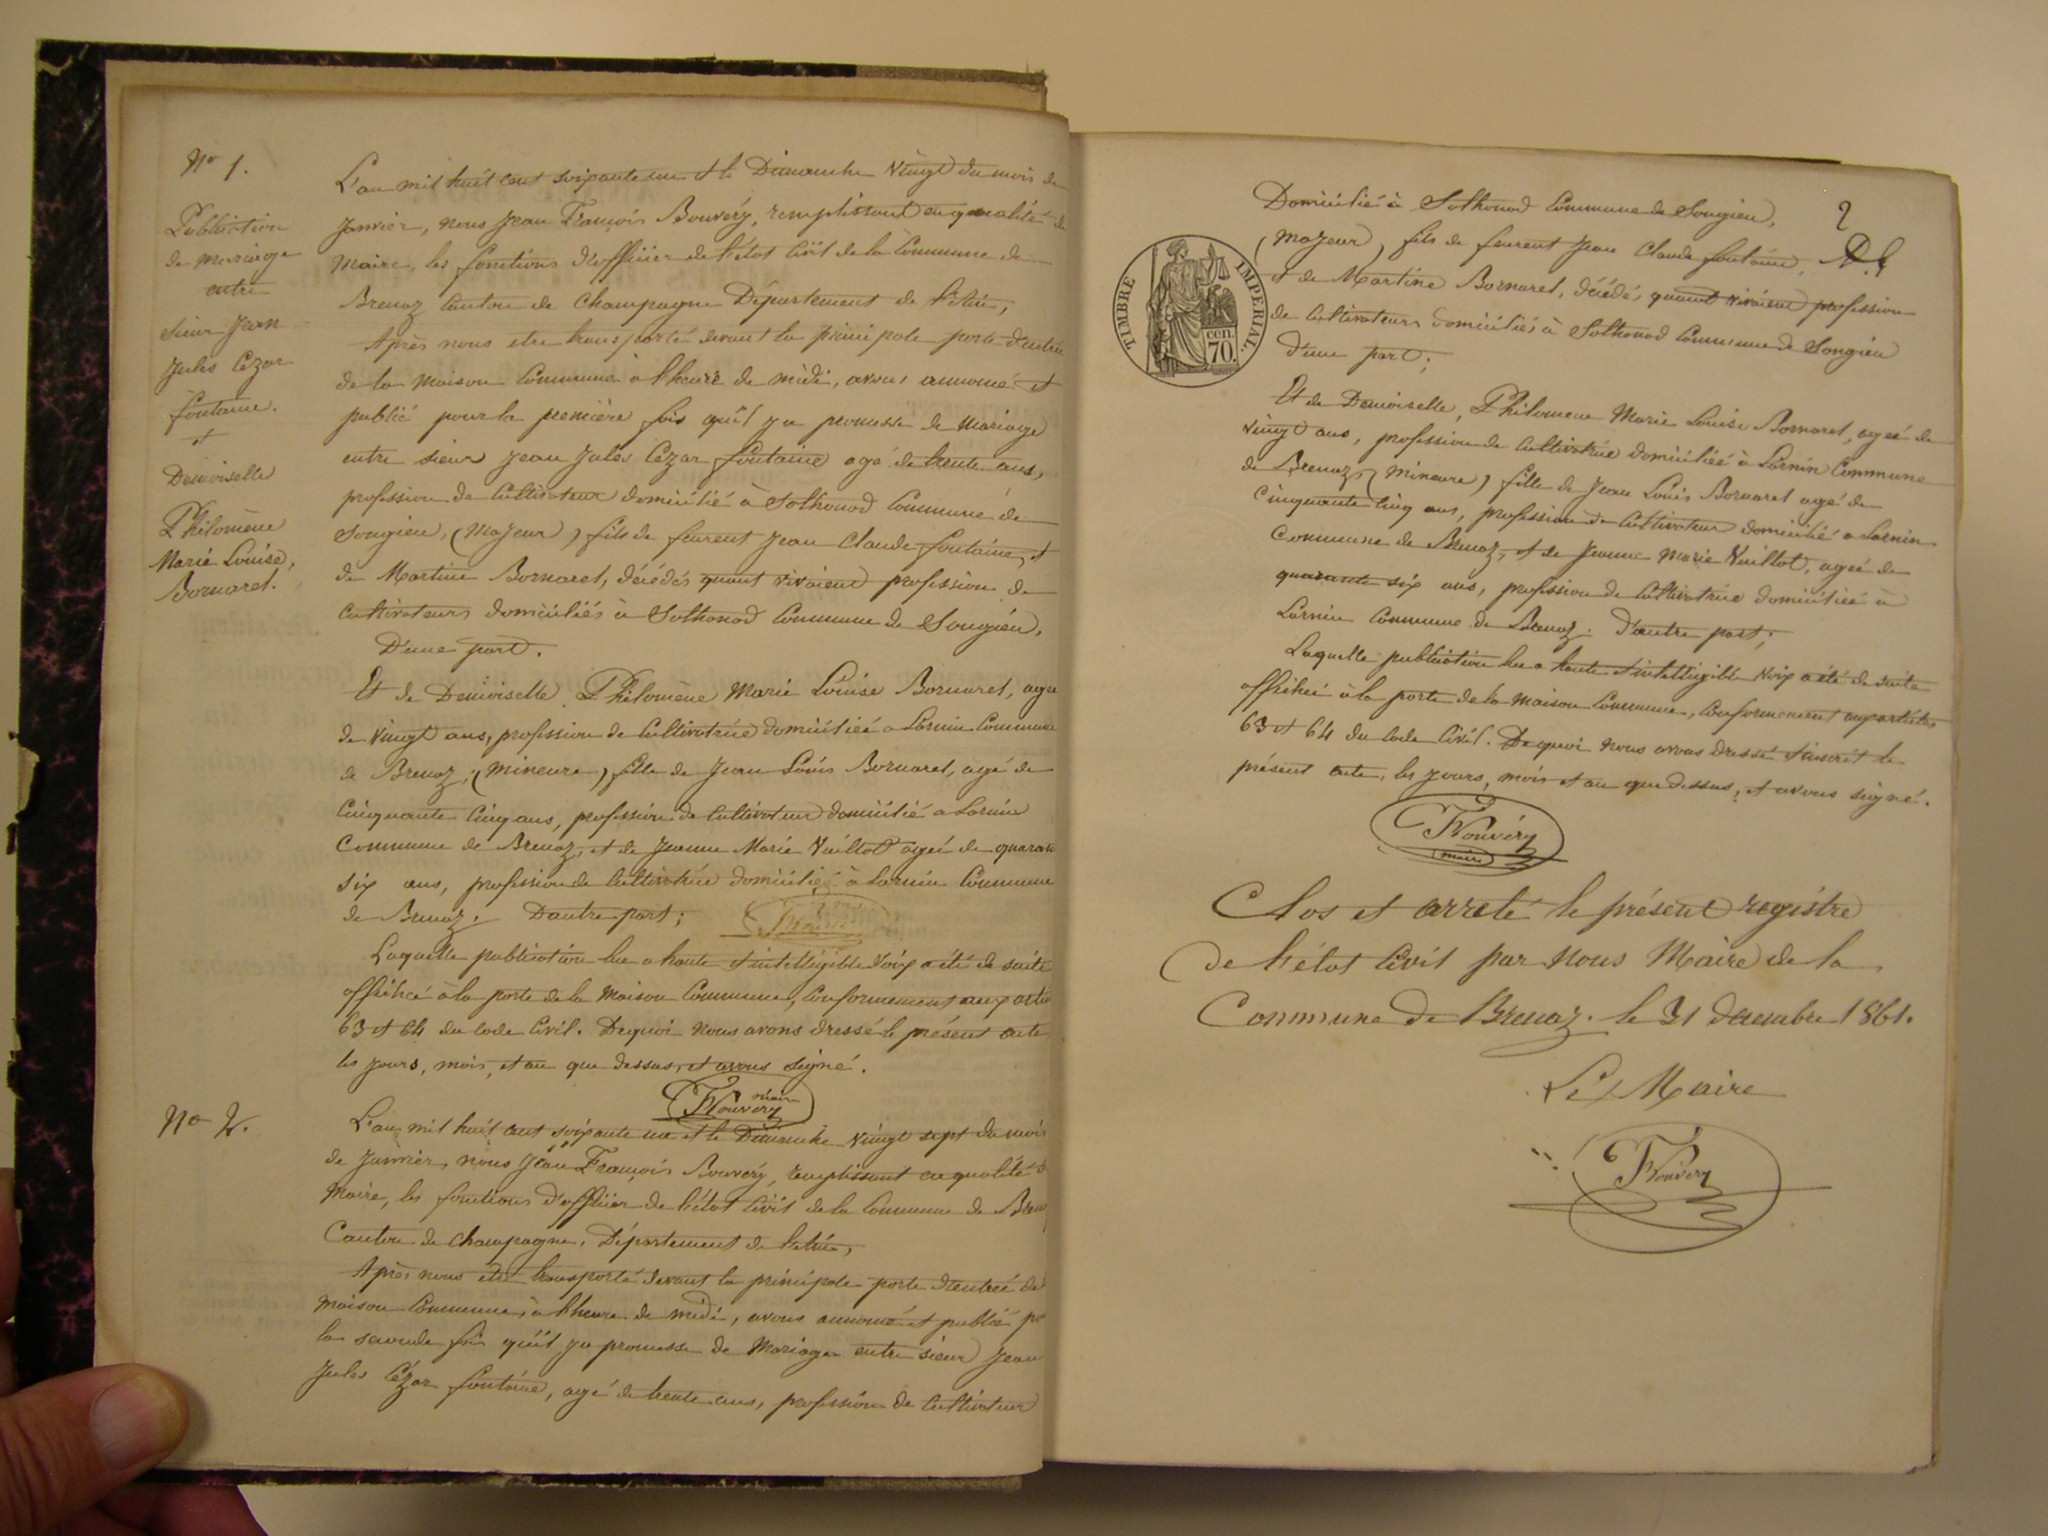 No 1.
Publication
de mariage
entre
Sieur Jean
Jules Cézar
fontaine.
et
Demoiselle
Philomène
Marie Louise,
Bornaret.
L'an mil huit cent soixante un et le Dimanche vingt du mois de
Janvier, nous Jean François Bouvéry, remplissant en qualité de
Maire, les fonctions d'officier de l'état civil de la Commune de
Brenaz Canton de Champagne Département de l'Ain,
Après nous etre transporté devant la principale porte d'entrée
de la maison Commune à l'heure de midi, avons annoncé et
publié pour la première fois qu'il y a promesse de mariage
entre sieur Jean Jules Cézar fontaine agé de trente ans,
profession de Cultivateur domicilié à Sothonod Commune de
Songieu, (Majeur) fils de feurent Jean Claude fontaine, et
de Martine Bornaret, décédés quant vivaient profession de
cultivateurs domiciliés à Sothonod Commune de Songieu,
D'une part.
Et de Demoiselle Philomène Marie Louise Bornaret, agee
de vingt ans, profession de Cultivatrice domiciliée a Lornin Commune
de Brenaz, (mineure) fille de Jean Louis Bornaret, agé de
Cinquante Cinq ans, profession de Cultivateur domicilié a Lornin
Commune de Brenaz, et de Jeanne Marie Vuillot agée de quarante
six ans, profession de Cultivatrice domiciliée à Lornin Commune
de Brenaz. D'autre part;
Laquelle publication lue a haute et intelligible voix a été de suite
affichée à la porte de la Maison Commune, Conformement aux articles
63 et 64 du Code Civil. De quoi nous avons dressé le présent acte
les jours, mois, et an que dessus, et avons signé.
Bouvéry maire
No 2.
L'an mil huit cent soixante un et le Dimanche vingt sept du mois
de Janvier, nous Jean François Bouvéry, remplissant en qualité de
Maire, les fonctions d'officier de l'état Civil de la Commune de Brenaz
Canton de Champagne, Département de l'Ain,
Après nous etre transporté devant la principale porte d'entrée de la
maison Commune, à l'heure de midi, avons annoncé et publié pour
la seconde fois qu'il y a promesse de Mariage entre sieur Jean
Jules Cézar fontaine, agé de trente ans, profession de Cultivateur
2
TIMBRE IMPERIAL.
cen.
70.
Domicilié à Sothonod Commune de Songieu,
(Majeur) fils de feurent Jean Claude fontaine,
et de Martine Bornaret, décédés quant vivaient profession
de Cultivateurs domiciliés à Sothonod Commune de Songieu
d'une part;
Et de Demoiselle, Philomene Marie Louise Bornaret, agée de
vingt ans, profession de Cultivatrice domiciliée à Lornin Commune
de Brenaz, (mineure) fille de Jean Louis Bornaret agé de
cinquante cinq ans, profession de Cultivateur domicilié a Lornin
Commune de Brenaz, et de Jeanne Marie Vuillot, agée de
quarante six ans, profession de Cultivatrice domiciliée à
Lornin Commune de Brenaz. D'autre part;
Laquelle publication lue a haute et intelligible voix a été de suite
affichée à la porte de la Maison Commune, Conformement aux articles
63 et 64 du Code Civil. De quoi nous avons dressé et inscrit le
présent acte, les jours, mois et an que dessus, et avons signé.
Bouvéry
maire
Clos et arreté le présent registre
de l'état Civil par nous Maire de la
Commune de Brenaz. le 31 decembre 1861.
Le Maire
Bouvéry